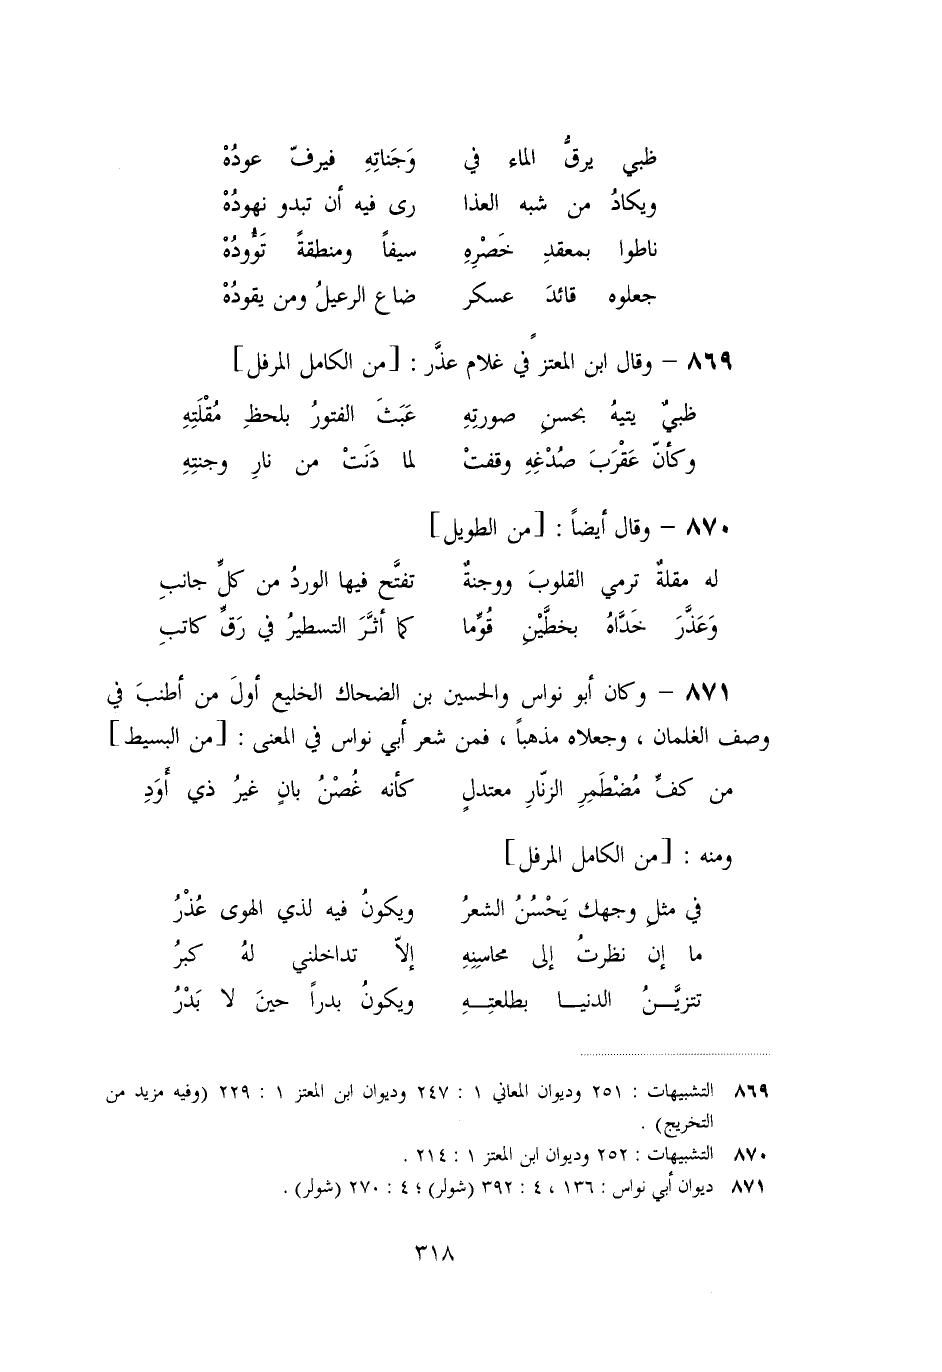 ظبي يرقُّ الماء في وَجَناتِهِ فيرفّ عودُهْ
ويكادُ من شبه العذا رى فيه أن تبدو نهودُهْ
ناطوا بمعقدِ خَصْرِهِ سيفاً ومنطقةً تَؤُودُهْ
جعلوه قائدَ عسكر ضاع الرعيلُ ومن يقودُهْ
٨٦٩ – وقال ابن المعتز في غلام عذَّر : [من الكامل المرفل]
ظبيٌ يتيهُ بحسنِ صورتِهِ عَبَثَ الفتورُ بلحظِ مُقْلَتِهِ
وكأنّ عَقْرَبَ صُدْغِهِ وقفتْ لما دَنَتْ من نارِ وجنتِهِ
٨٧٠ – وقال أيضاً : [من الطويل]
له مقلةٌ ترمي القلوبَ ووجنةٌ تفتَّح فيها الوردُ من كلِّ جانبِ
وَعَذَّرَ خَدَّاهُ بخطَّيْنِ قُوِّما كما أثَّرَ التسطيرُ في رَقِّ كاتبِ
٨٧١ – وكان أبو نواس والحسين بن الضحاك الخليع أولَ من أطنبَ في
وصف الغلمان ، وجعلاه مذهباً ، فمن شعر أبي نواس في المعنى : [من البسيط]
من كفِّ مُضْطَمِرِ الزنّارِ معتدلٍ كأنه غُصْنُ بانٍ غيرُ ذي أَوَدِ
ومنه : [من الكامل المرفل]
في مثلِ وجهك يَحْسُنُ الشعرُ ويكونُ فيه لذي الهوى عُذْرُ
ما إن نظرتُ إلى محاسِنِهِ إلاّ تداخلني لهُ كبرُ
تتزيَّنُ الدنيا بطلعتِهِ ويكونُ بدراً حينَ لا بَدْرُ
٨٦٩ التشبيهات : ٢٥١ وديوان المعاني ١ : ٢٤٧ وديوان ابن المعتز ١ : ٢٢٩ (وفيه مزيد من
التخريج) .
٨٧٠ التشبيهات : ٢٥٢ وديوان ابن المعتز ١ : ٢١٤ .
٨٧١ ديوان أبي نواس : ١٣٦ ، ٤ : ٣٩٢ (شولر) ؛ ٤ : ٢٧٠ (شولر) .
٣١٨